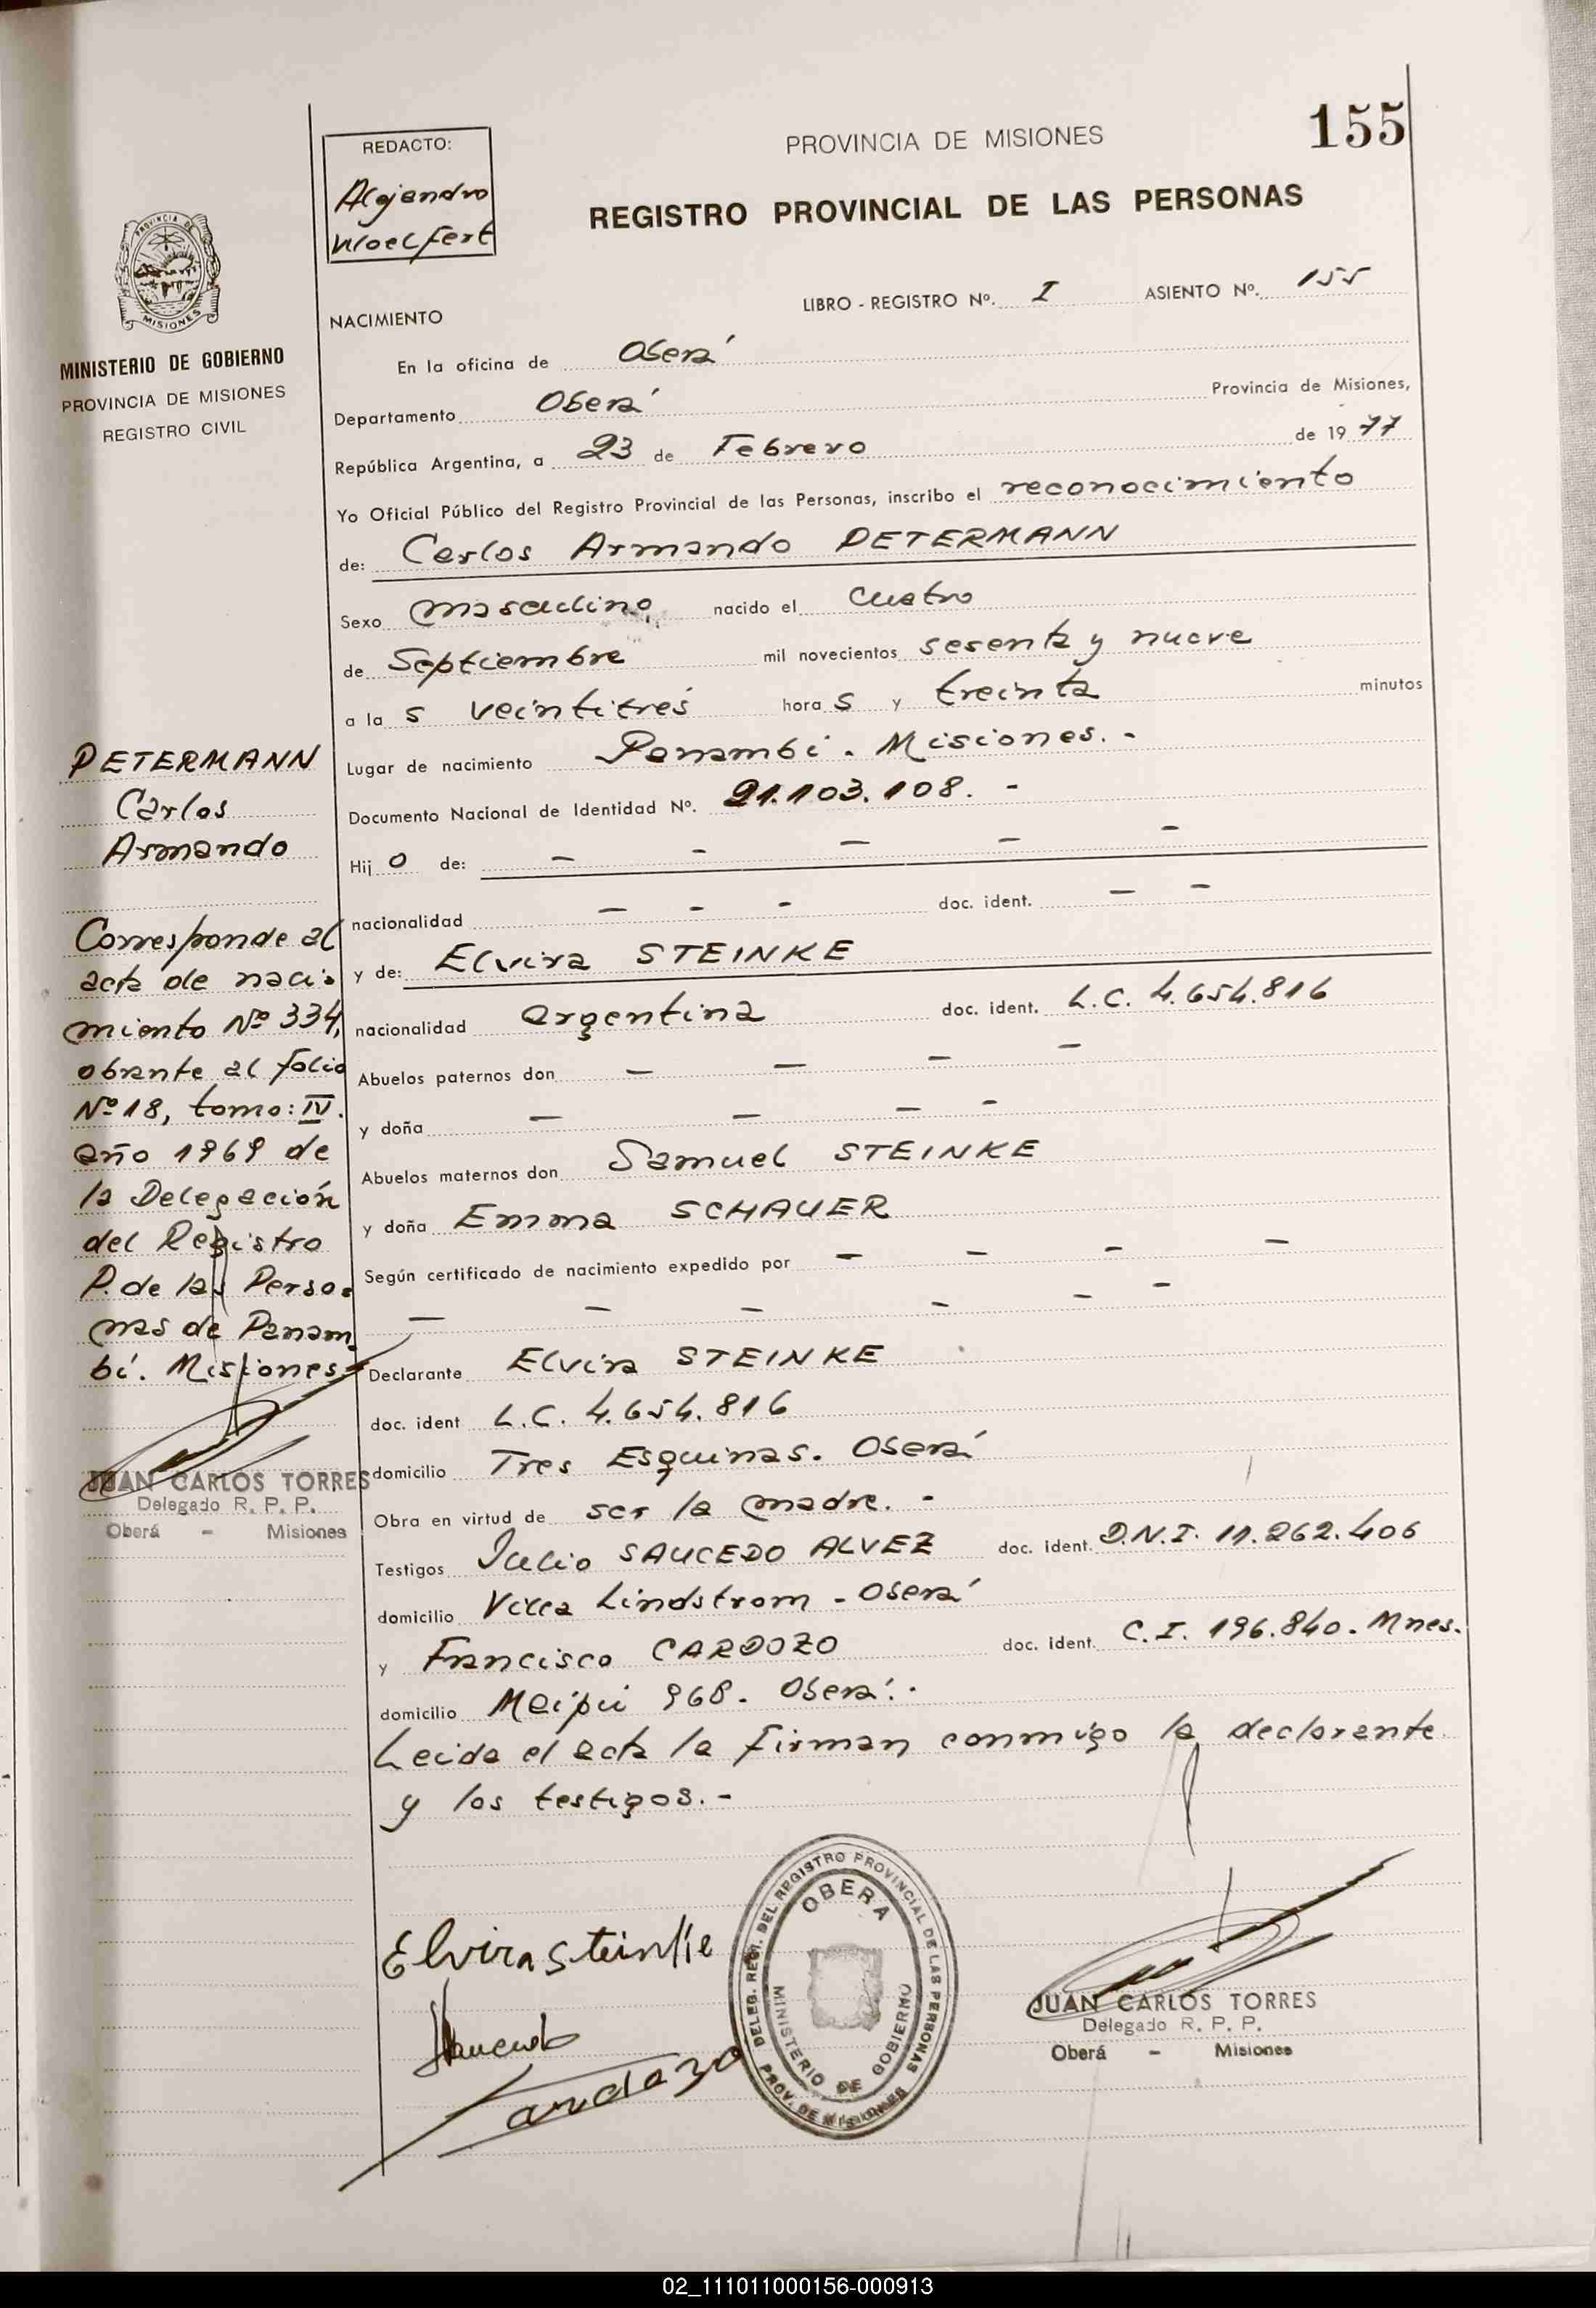 155
REDACTO:
Alejandro
Woelfert
PROVINCIA DE MISIONES
REGISTRO PROVINCIAL DE LAS PERSONAS
PROVINCIA DE
MISIONES
MINISTERIO DE GOBIERNO
PROVINCIA DE MISIONES
REGISTRO CIVIL
LIBRO - REGISTRO Nº. I ASIENTO Nº. 155
NACIMIENTO
En la oficina de Oberá
Departamento Oberá Provincia de Misiones,
República Argentina, a 23 de Febrero de 19 77
Yo Oficial Público del Registro Provincial de las Personas, inscribo el reconocimiento
de: Carlos Armando PETERMANN
Sexo masculino nacido el cuatro
de Septiembre mil novecientos sesenta y nueve
a la s veintitrés hora s y treinta minutos
Lugar de nacimiento Panambí. Misiones. -
Documento Nacional de Identidad Nº. 21.103.108. -
Hij o de: — - — — —
nacionalidad — - - doc. ident. — -
y de: Elvira STEINKE
nacionalidad argentina doc. ident. L.C. 4.654.816
Abuelos paternos don — — — —
y doña — — — -
Abuelos maternos don Samuel STEINKE
y doña Emma SCHAUER
Según certificado de nacimiento expedido por — — — —
— — — — — —
Declarante Elvira STEINKE
doc. ident L.C. 4.654.816
domicilio Tres Esquinas. Oberá
Obra en virtud de ser la madre. -
Testigos Julio SAUCEDO ALVEZ doc. ident. D.N.I. 11.262.406
domicilio Villa Lindstrom - Oberá
y Francisco CARDOZO doc. ident. C.I. 196.840. Mnes.
domicilio Maipú 968. Oberá. .
Leida el acta la firman conmigo la declarante
y los testigos. -
PETERMANN
Carlos
Armando
Corresponde al
acta de naci-
miento Nº 334,
obrante al folio
Nº 18, tomo: IV.
año 1969 de
la Delegación
del Registro
P. de las Perso-
nas de Panam-
bí. Misiones-
JUAN CARLOS TORRES
Delegado R. P. P.
Oberá - Misiones
Elvira Steinke
Saucedo
Cardozo
DELEG. REGI. DEL REGISTRO PROVINCIAL DE LAS PERSONAS
PROV. DE MISIONES
OBERA
MINISTERIO DE GOBIERNO
JUAN CARLOS TORRES
Delegado R. P. P.
Oberá - Misiones
02_111011000156-000913